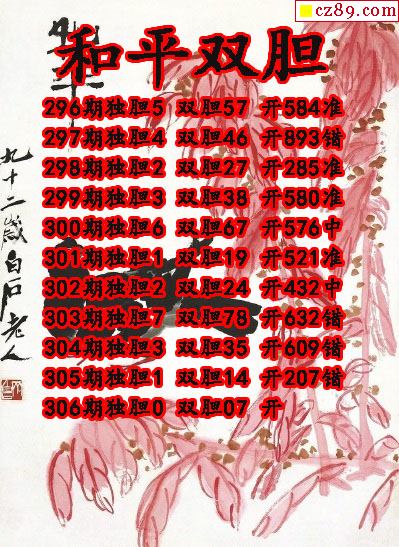 cz89.com
和平双胆
296期独胆5 双胆57 开584准
297期独胆4 双胆46 开893错
298期独胆2 双胆27 开285准
299期独胆3 双胆38 开580准
300期独胆6 双胆67 开576中
301期独胆1 双胆19 开521准
302期独胆2 双胆24 开432中
303期独胆7 双胆78 开632错
304期独胆3 双胆35 开609错
305期独胆1 双胆14 开207错
306期独胆0 双胆07 开
九十二岁白石老人